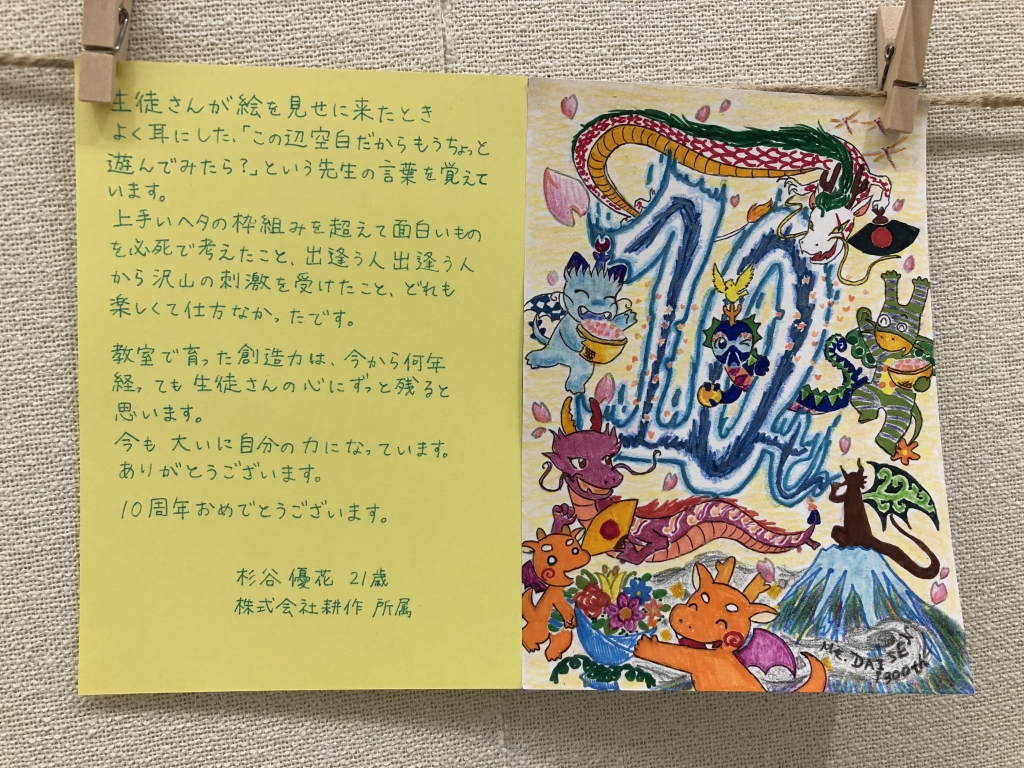 生徒さんが絵を見せに来たとき
よく耳にした、「この辺空白だからもうちょっと
遊んでみたら?」という先生の言葉を覚えて
います。
上手いヘタの枠組みを超えて面白いもの
を必死で考えたこと、出逢う人出逢う人
から沢山の刺激を受けたこと、どれも
楽しくて仕方なかったです。
教室で育った創造力は、今から何年
経っても生徒さんの心にずっと残ると
思います。
今も大いに自分の力になっています。
ありがとうございます。
10周年おめでとうございます。
杉谷優花 21歳
株式会社耕作 所属
10
Mt. DAISEN
1300th